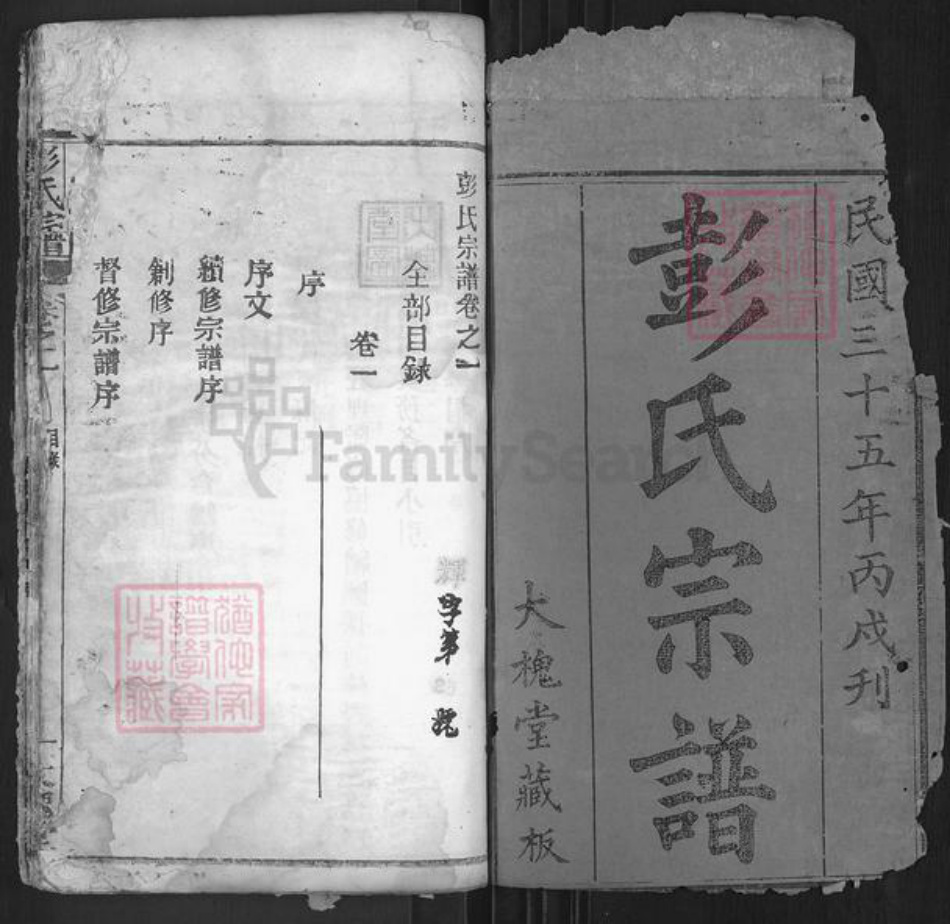 民國三十五年丙戌刊
彭氏宗譜
大槐堂藏板
彭氏宗譜卷之一
全部目錄
卷一
序
序文
續修宗譜序
創修序
督修宗譜序
字第 號
彭氏宗譜
目錄
猶他家譜學會收藏
FamilySearch